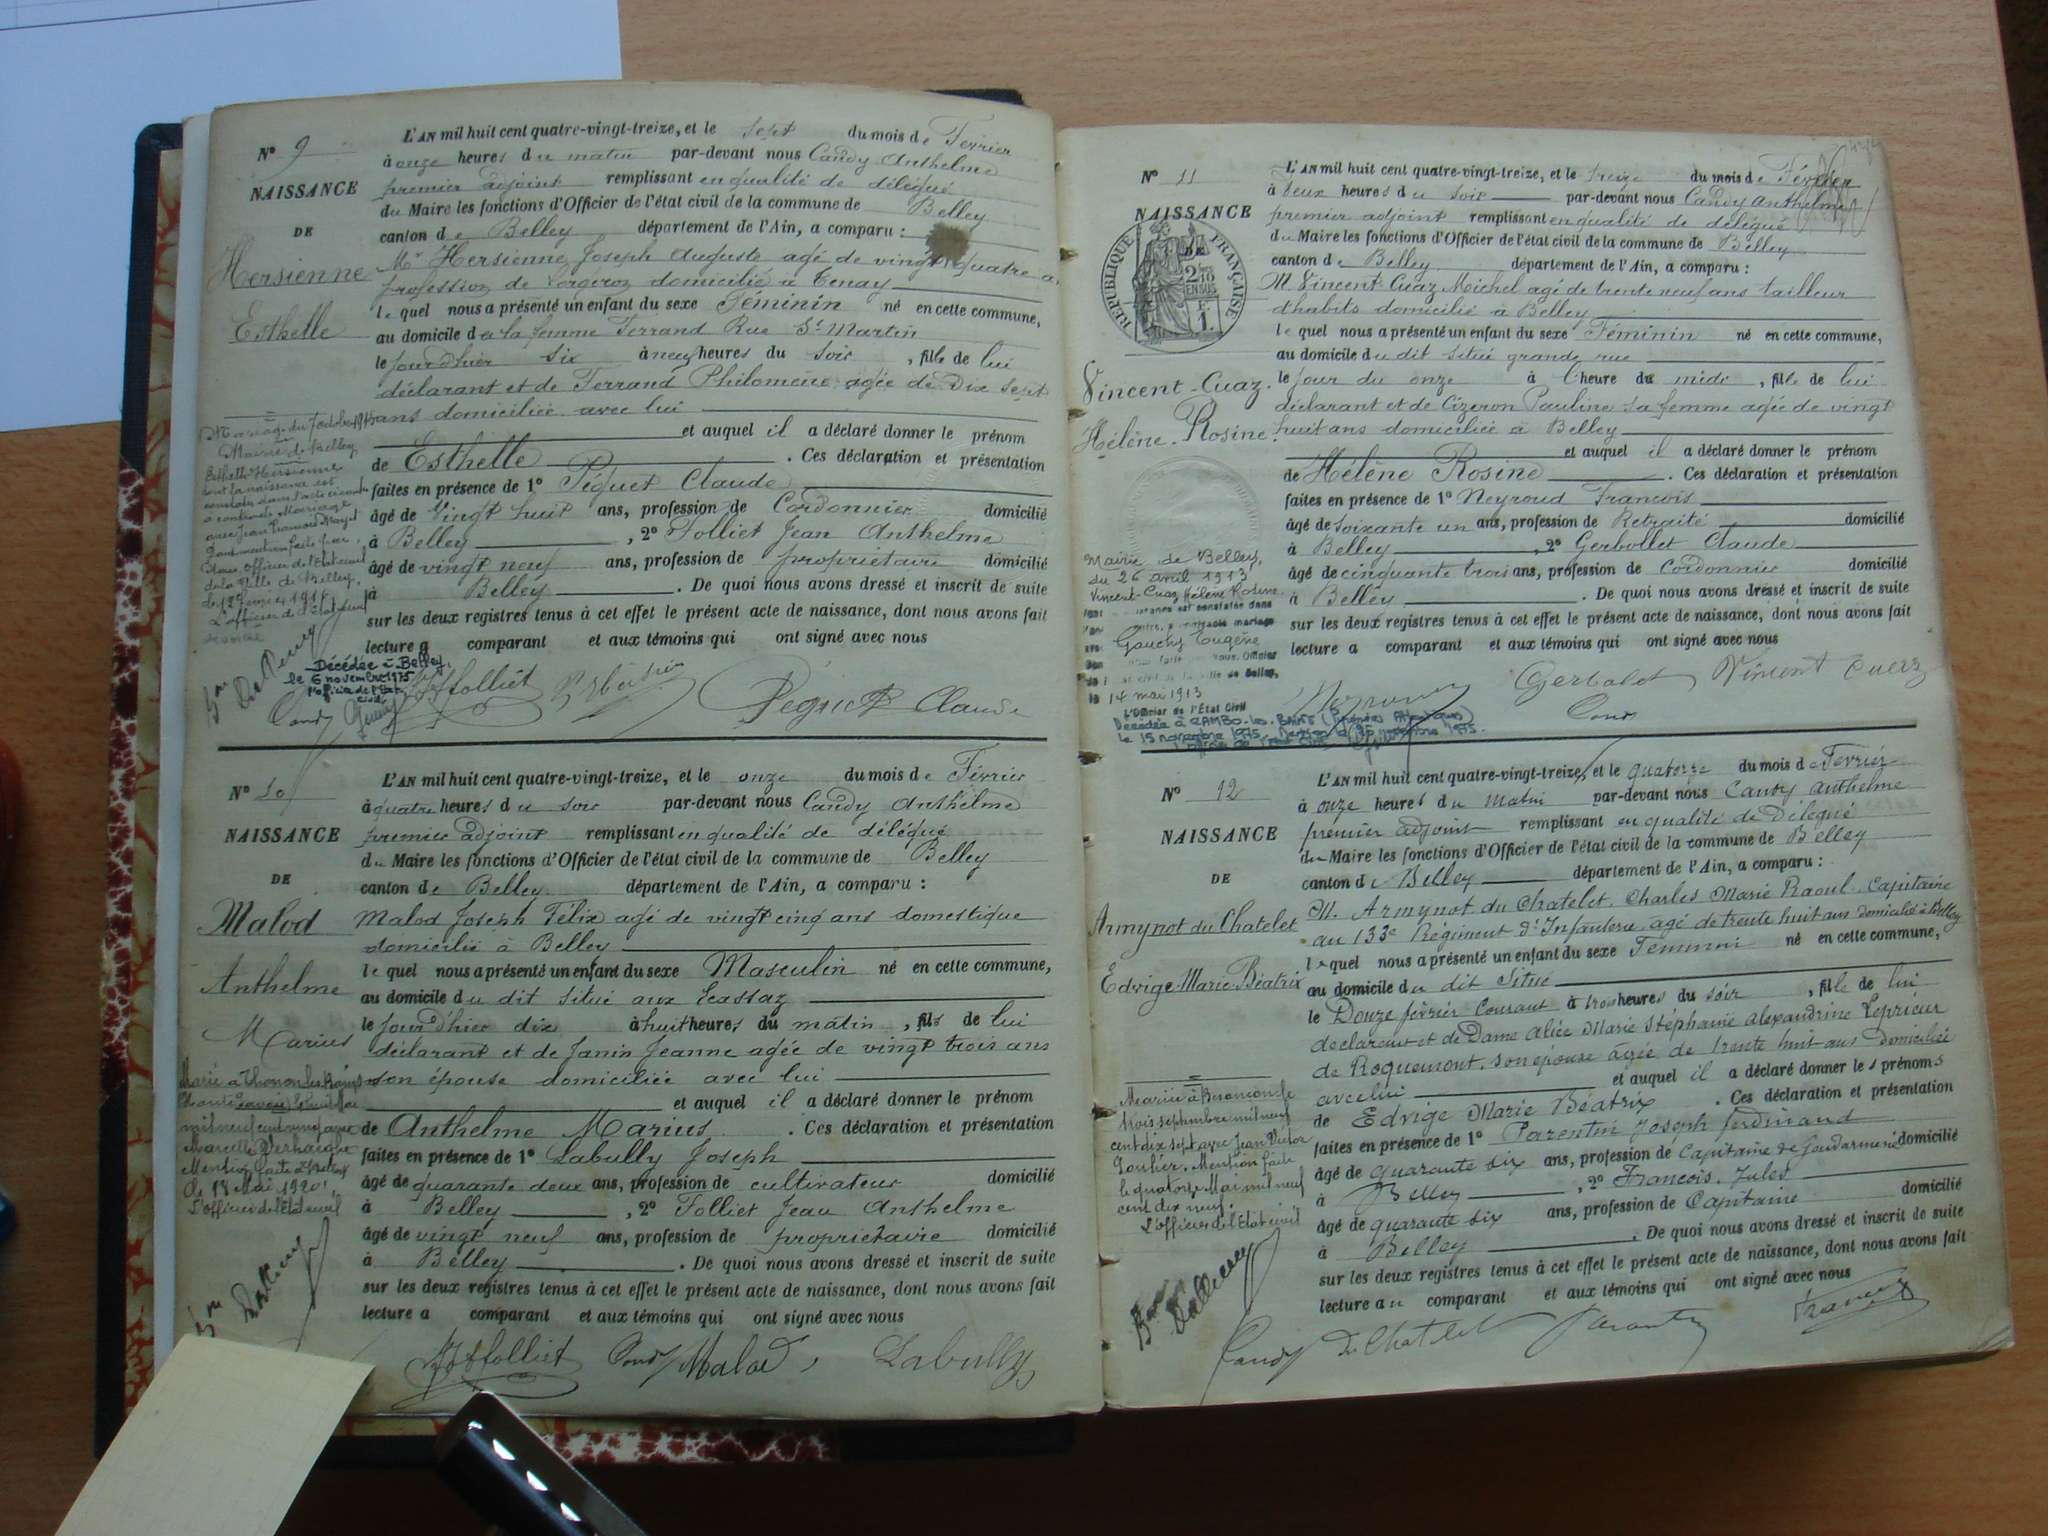 N° 9
NAISSANCE
DE
Hersienne
Esthelle
L'AN mil huit cent quatre-vingt-treize, et le sept du mois de Fevrier
à onze heures du matin par-devant nous Candy Anthelme
premier adjoint remplissant en qualité de délégué
du Maire les fonctions d'Officier de l'état civil de la commune de Belley
canton de Belley département de l'Ain, a comparu :
Mr Hersienne Joseph Auguste agé de vingt quatre a.
profession de domicilié à Tenay
lequel nous a présenté un enfant du sexe Féminin né en cette commune,
au domicile de la femme Ferrand Rue St Martin
le jour d'hier six à neuf heures du soir, fille de lui
déclarant et de Ferrand Philomène agée de Dix sept
ans domiciliée avec lui
et auquel il a déclaré donner le prénom
de Esthelle. Ces déclaration et présentation
faites en présence de 1° Péquet Claude
âgé de Vingt huit ans, profession de Cordonnier domicilié
à Belley, 2° Folliet Jean Anthelme
âgé de vingt neuf ans, profession de propriétaire domicilié
à Belley. De quoi nous avons dressé et inscrit de suite
sur les deux registres tenus à cet effet le présent acte de naissance, dont nous avons fait
lecture a comparant et aux témoins qui ont signé avec nous
Mairie de Belley
Esthelle Hersienne
dont la naissance est
constatée dans l'acte ci-contre
a contracté Mariage
avec
Dont mention faite par
Nous, Officier de l'Etat civil
de la Ville de Belley,
L'officier de l'Etat civil
Décédée à Belley
le 6 novembre 1975
l'officier de l'Etat
civil
Candy JAffolliet Péquet Claude
N° 10
NAISSANCE
DE
Malod
Anthelme
Marius
L'AN mil huit cent quatre-vingt-treize, et le onze du mois de Février
à quatre heures du soir par-devant nous Candy Anthelme
premier adjoint remplissant en qualité de délégué
du Maire les fonctions d'Officier de l'état civil de la commune de Belley
canton de Belley département de l'Ain, a comparu :
Malod Joseph Félix agé de vingt cinq ans domestique
domicilié à Belley
lequel nous a présenté un enfant du sexe Masculin né en cette commune,
au domicile du dit situé aux Ecassaz
le jour d'hier dix à huit heures du matin, fils de lui
déclarant et de Janin Jeanne agée de vingt trois ans
son épouse domiciliée avec lui
et auquel il a déclaré donner le prénom
de Anthelme Marius. Ces déclaration et présentation
faites en présence de 1° Labully Joseph
âgé de quarante deux ans, profession de cultivateur domicilié
à Belley, 2° Folliet Jean Anthelme
âgé de vingt neuf ans, profession de propriétaire domicilié
à Belley. De quoi nous avons dressé et inscrit de suite
sur les deux registres tenus à cet effet le présent acte de naissance, dont nous avons fait
lecture a comparant et aux témoins qui ont signé avec nous
Marié à Thonon les Bains
Marcelle
Mention faite
le 18 Mai 1920
L'officier de l'Etat civil
JAffolliet Candy Malod Labully
N° 11
NAISSANCE
DE
RÉPUBLIQUE FRANÇAISE
2/10 EN SUS
Vincent-Cuaz.
Hélène-Rosine.
L'AN mil huit cent quatre-vingt-treize, et le treize du mois de Février
à deux heures du soir par-devant nous Candy Anthelme
premier adjoint remplissant en qualité de délégué
du Maire les fonctions d'Officier de l'état civil de la commune de Belley
canton de Belley département de l'Ain, a comparu :
M. Vincent-Cuaz Michel agé de trente neuf ans tailleur
d'habits domicilié à Belley
lequel nous a présenté un enfant du sexe Féminin né en cette commune,
au domicile du dit situé grande rue
le jour du onze à l'heure de midi, fille de lui
déclarant et de Cizeron Pauline sa femme agée de vingt
huit ans domiciliée à Belley
et auquel il a déclaré donner le prénom
de Hélène Rosine. Ces déclaration et présentation
faites en présence de 1° Neyroud Francois
âgé de soixante un ans, profession de Retraité domicilié
à Belley, 2° Gerbollet Claude
âgé de cinquante trois ans, profession de Cordonnier domicilié
à Belley. De quoi nous avons dressé et inscrit de suite
sur les deux registres tenus à cet effet le présent acte de naissance, dont nous avons fait
lecture a comparant et aux témoins qui ont signé avec nous
Mairie de Belley,
du 26 avril 1913
Vincent-Cuaz Hélène Rosine
naissance est constatée dans
contre, a contracté mariage
Gauchy Eugène
de la ville de Belley,
le 14 mai 1913
L'Officier de l'État Civil
Décédée à CAMBO-les-BAINS (Pyrénées Atlantiques)
le 15 novembre 1975.
Gerbolet Vincent Cuerz
Candy
N° 12
NAISSANCE
DE
Armynot du Chatelet
Edvige-Marie-Béatrix
L'AN mil huit cent quatre-vingt-treize, et le quatorze du mois de Fevrier
à onze heures du Matin par-devant nous Candy Anthelme
premier adjoint remplissant en qualité de Délégué
du Maire les fonctions d'Officier de l'état civil de la commune de Belley
canton de Belley département de l'Ain, a comparu :
M. Armynot du Chatelet, Charles Marie Raoul, Capitaine
au 133e Régiment d'Infanterie, agé de trente huit ans domicilié à Belley
lequel nous a présenté un enfant du sexe Feminin né en cette commune,
au domicile du dit Situé
le Douze février Courant à trois heures du soir, fille de lui
declarant et de Dame Alice Marie Stéphanie Alexandrine Leprieur
de Roquemont, son epouse âgée de trente huit ans domiciliée
avec lui et auquel il a déclaré donner les prénoms
de Edvige Marie Béatrix. Ces déclaration et présentation
faites en présence de 1° Parentin Joseph Ferdinand
âgé de quarante six ans, profession de Capitaine de Gendarmerie domicilié
à Belley, 2° François, Jules
âgé de quarante six ans, profession de Capitaine domicilié
à Belley. De quoi nous avons dressé et inscrit de suite
sur les deux registres tenus à cet effet le présent acte de naissance, dont nous avons fait
lecture au comparant et aux témoins qui ont signé avec nous
Mariée à Besançon le
trois septembre mil neuf
cent dix sept avec Jean Victor
Mention faite
le quatorze Mai mil neuf
cent dix neuf.
L'officier de l'Etat civil
Candy Du Chatelet